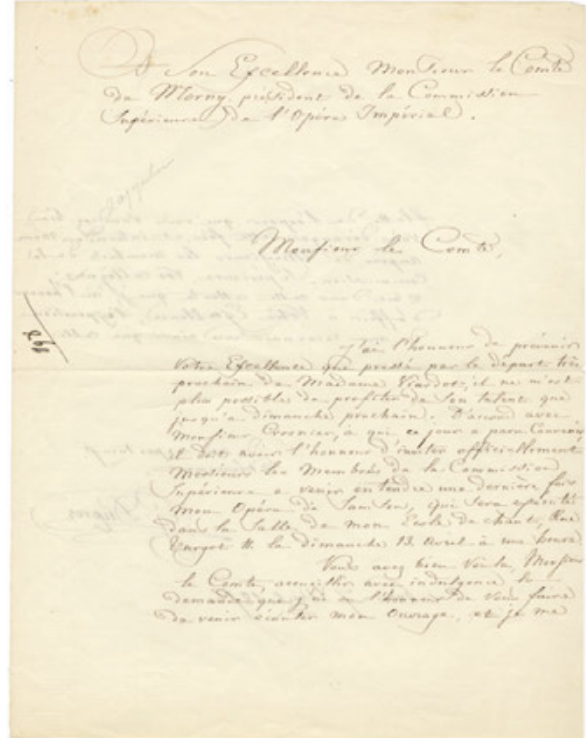 A Son Excellence Monsieur le Comte
de Morny, président de la Commission
Supérieure de l'Opéra Impérial.
Monsieur le Comte,
J'ai l'honneur de prévenir
Votre Excellence que pressé par le départ très
prochain de Madame Viardot, il ne m'est
plus possible de profiter de son talent que
jusqu'a dimanche prochain. D'accord avec
Monsieur Crosnier, à qui ce jour a paru
et doit avoir l'honneur d'inviter officiellement
Messieurs les Membres de la Commission
Supérieure a venir entendre une dernière fois
mon Opéra de Samson, qui sera exécuté
dans la Salle de mon Ecole de chant, Rue
Turgot 11. le dimanche 13 Avril à une heure
Vous avez bien voulu, Monsieur
le Comte, accueillir avec indulgence la
demande que j'ai eu l'honneur de vous faire
de venir écouter mon Ouvrage, et je me